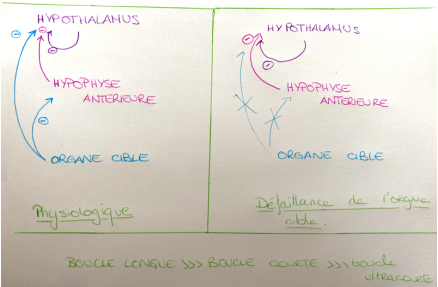 HYPOTHALAMUS
HYPOPHYSE
ANTÉRIEURE
ORGANE CIBLE
Physiologique
HYPOTHALAMUS
HYPOPHYSE
ANTÉRIEURE
ORGANE CIBLE
Défaillance de l'organe
cible.
BOUCLE LONGUE >>> BOUCLE COURTE >>> boucle
ultracourte